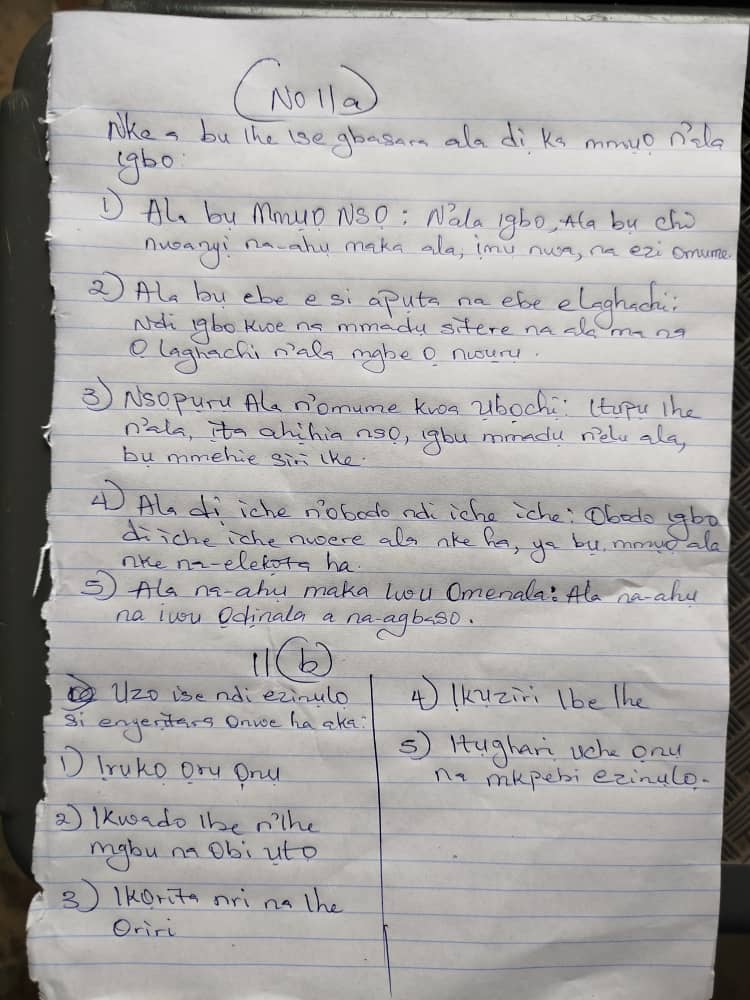 No 11a
Nke a bụ Ihe Ise gbasara ala dị ka mmụọ n'ala
igbo:
1) Ala bụ Mmụọ NSỌ: N'ala igbo, Ala bụ chi
nwanyị na-ahụ maka ala, ịmụ nwa, na ezi omume.
2) Ala bụ ebe e si apụta na ebe elaghachi:
Ndi igbo kwe na mmadụ sitere na ala ma na
Ọ laghachi n'ala mgbe Ọ nwụrụ.
3) Nsọpụrụ Ala n'omume kwa ụbọchị: Itụpụ Ihe
n'ala, ịta ahihia nsọ, igbu mmadụ n'elu ala,
bụ mmehie siri ike.
4) Ala dị iche n'obodo ndi iche iche: Obodo igbo
dị iche iche nwere ala nke ha, ya bụ, mmụọ ala
nke na-elekọta ha.
5) Ala na-ahụ maka Iwu Omenala: Ala na-ahụ
na iwu Ọdịnala a na-agbaso.
11(b)
Uzo ise ndi ezinụlọ
si enyerịtara Onwe ha aka:
1) Irukọ Ọrụ Ọnụ
2) Ikwado Ibe n'Ihe
mgbu na Obi ụtọ
3) Ikọrịta nri na Ihe
Oriri
4) Ikuziri Ibe Ihe
5) Itụgharị uche ọnụ
na mkpebi ezinụlọ.